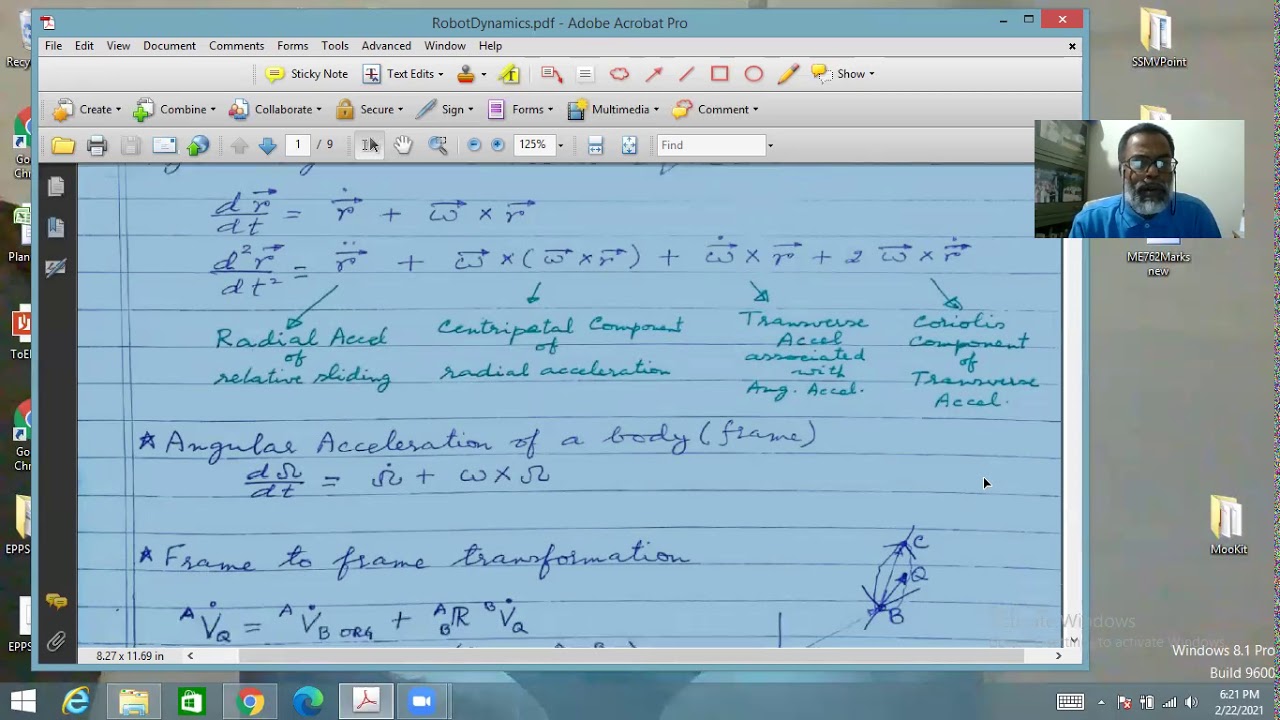 RobotDynamics.pdf - Adobe Acrobat Pro
File Edit View Document Comments Forms Tools Advanced Window Help
Sticky Note Text Edits Show
Create Combine Collaborate Secure Sign Forms Multimedia Comment
1 / 9 125% Find
d r⃗ / dt = ṙ⃗ + ω⃗ × r⃗
d² r⃗ / dt² = r̈⃗ + ω⃗ × ( ω⃗ × r⃗ ) + ω̇⃗ × r⃗ + 2 ω⃗ × ṙ⃗
Radial Accel of relative sliding
Centripetal Component of radial acceleration
Transverse Accel associated with Ang. Accel.
Coriolis Component of Transverse Accel.
* Angular Acceleration of a body (frame)
dΩ / dt = Ω̇ + ω × Ω
* Frame to frame transformation
C
Q
B
ᴬV̇Q = ᴬV̇B ORG + ᴬ_BR ᴮV̇Q
8.27 x 11.69 in
SSMVPoint
ME762Marks
new
MooKit
Recy
Go
Chr
Plan
ToEl
Go
Chr
EPPS
EPPS
Activate Windows
to activate Windows.
Windows 8.1 Pro
Build 9600
6:21 PM
2/22/2021